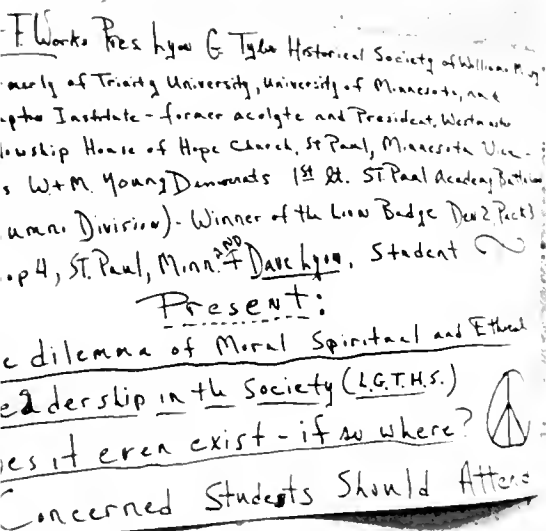 T. Works Pres Lyon G Tyler Historical Society of William
merly of Trinity University, University of Minnesota, and
Institute - former acolyte and President, Westminster
lowship House of Hope Church, St Paul, Minnesota Vice-
s W+M. Young Democrats 1st Lt. St. Paul Academy
umni Division) - Winner of the Lion Badge Den 2 Pack 3
op 4, St. Paul, Minn. + 2ND Dave Lyon, Student
Present:
e dilemma of Moral Spiritual and Ethical
eadership in the Society (L.G.T.H.S.)
es it even exist - if so where?
Concerned Students Should Attend